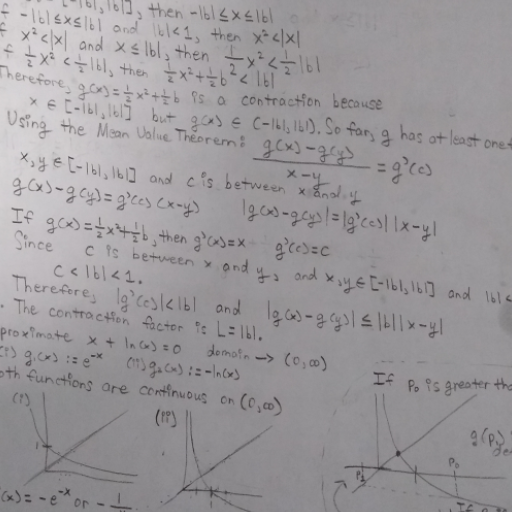 -|b|,|b|], then -|b|≤x≤|b|
f -|b|≤x≤|b| and |b|<1, then x²<|x|
f x²<|x| and x≤|b|, then 1/2 x² < 1/2 |b|
f 1/2 x² < 1/2 |b|, then 1/2 x² + 1/2 b < |b|
Therefore, g(x)=1/2 x²+1/2 b is a contraction because
x ∈ [-|b|,|b|] but g(x) ∈ (-|b|,|b|). So far, g has at least one f
Using the Mean Value Theorem: (g(x)-g(y))/(x-y) = g'(c)
x,y ∈ [-|b|,|b|] and c is between x and y
g(x)-g(y)=g'(c)(x-y) |g(x)-g(y)|=|g'(c)||x-y|
If g(x)=1/2 x²+1/2 b, then g'(x)=x g'(c)=c
Since c is between x and y, and x,y∈[-|b|,|b|] and |b|<
c<|b|<1.
Therefore, |g'(c)|<|b| and |g(x)-g(y)| ≤ |b||x-y|
. The contraction factor is L=|b|.
proximate x + ln(x)=0 domain → (0,∞)
(i) g₁(x) := e^-x (ii) g₂(x) := -ln(x)
oth functions are continuous on (0,∞)
If p₀ is greater tha
(i) (ii)
g(p
p₁ p₀
(x) = -e^-x or - 1
If